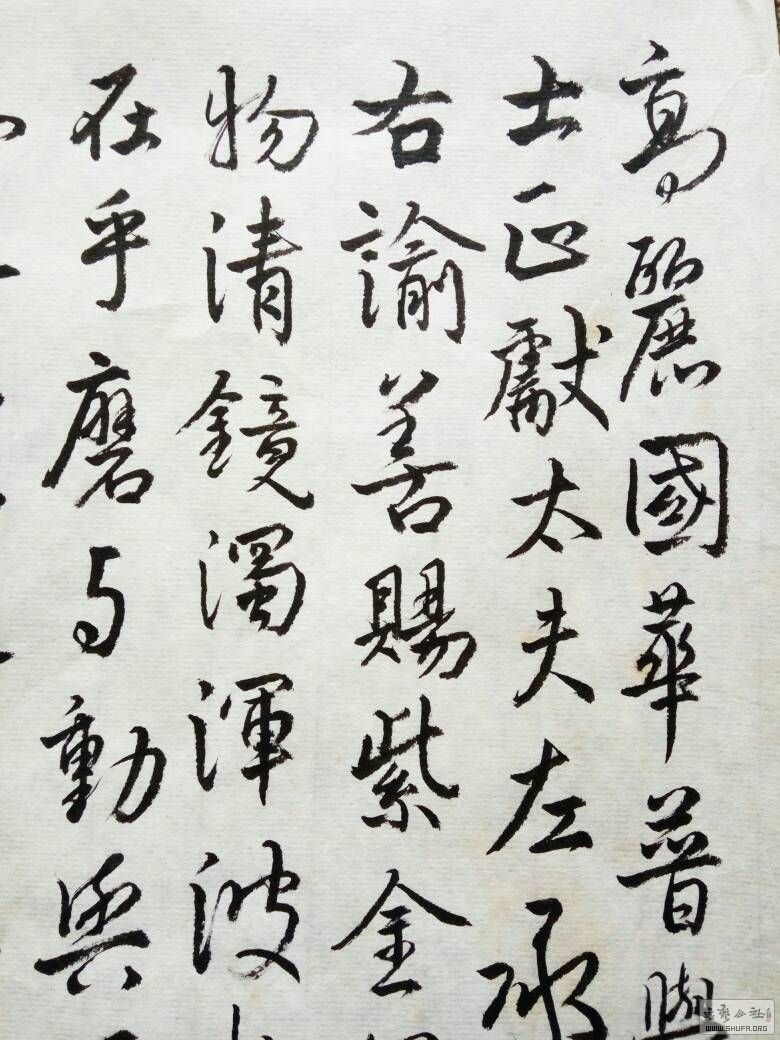 高麗國華普照
士正獻大夫左承
右諭善賜紫金
物清鏡濁渾波
在乎磨与動與
書藝公社
WWW.SHUFA.ORG